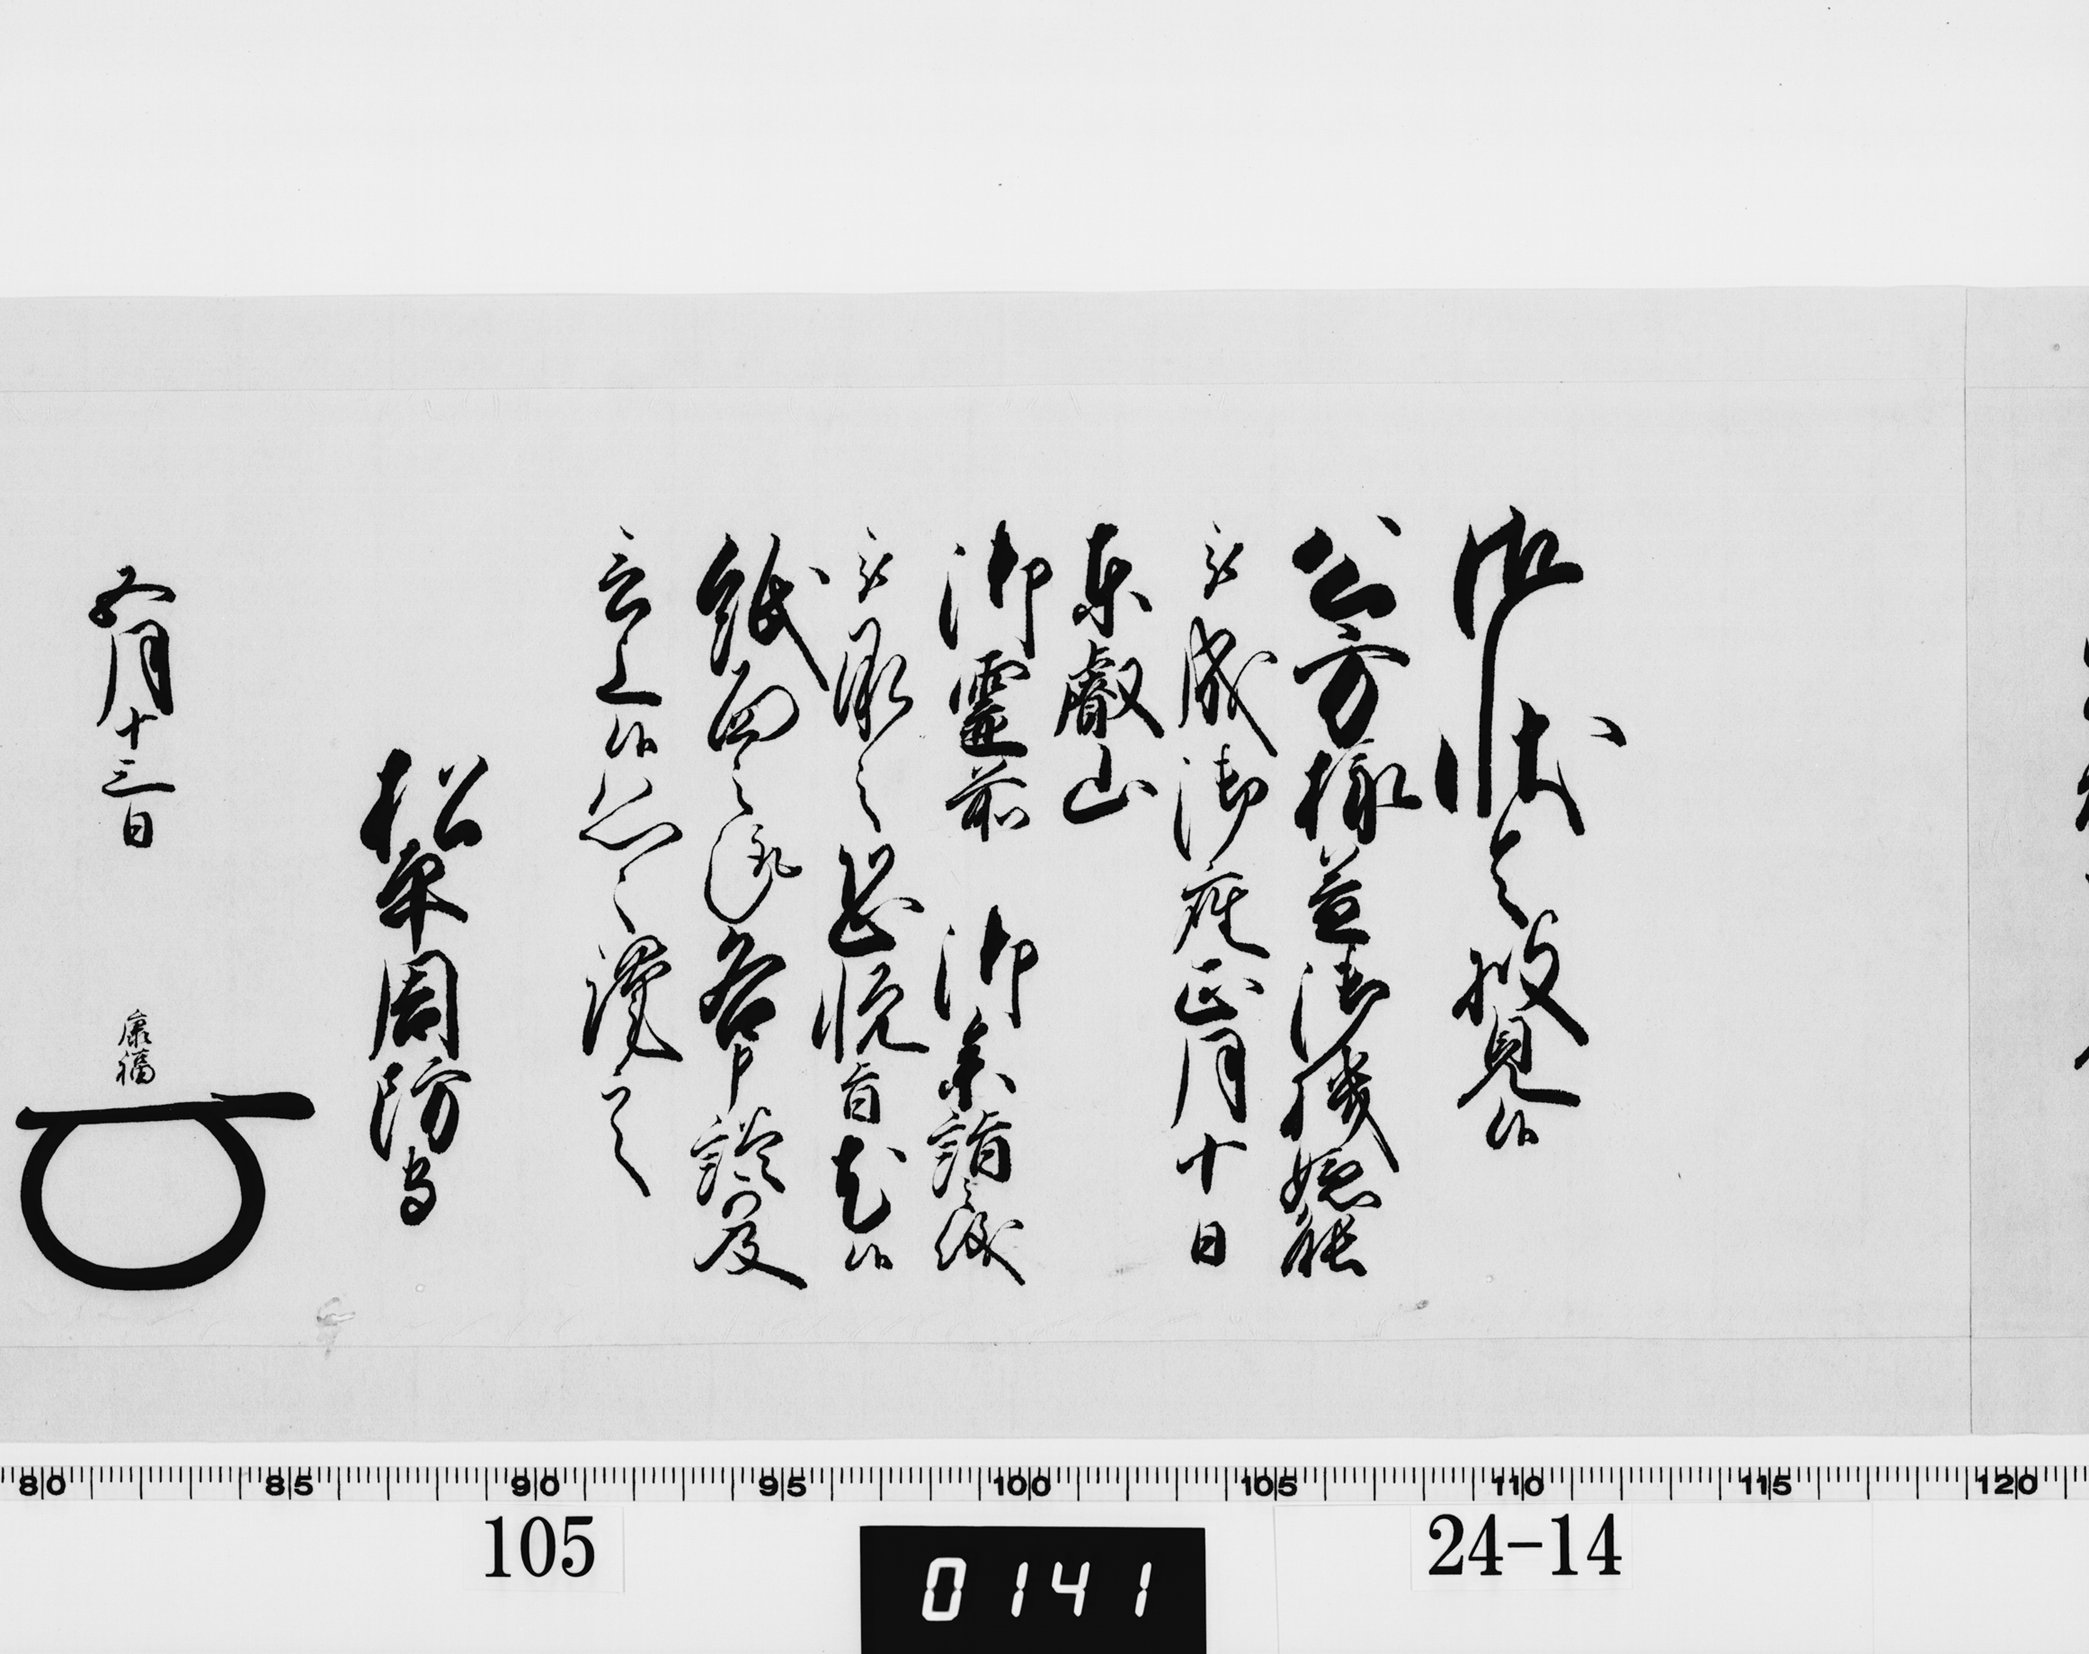 御状令披見候
公方様益御機嫌能
被成御座正月十日
東叡山
御霊前 御参詣之儀
被承之恐悦旨尤候
紙面之趣各申談及
言上候恐々謹言
松平周防守
五月十三日
康福
80 85 90 95 100 105 110 115 120
105
0141
24-14